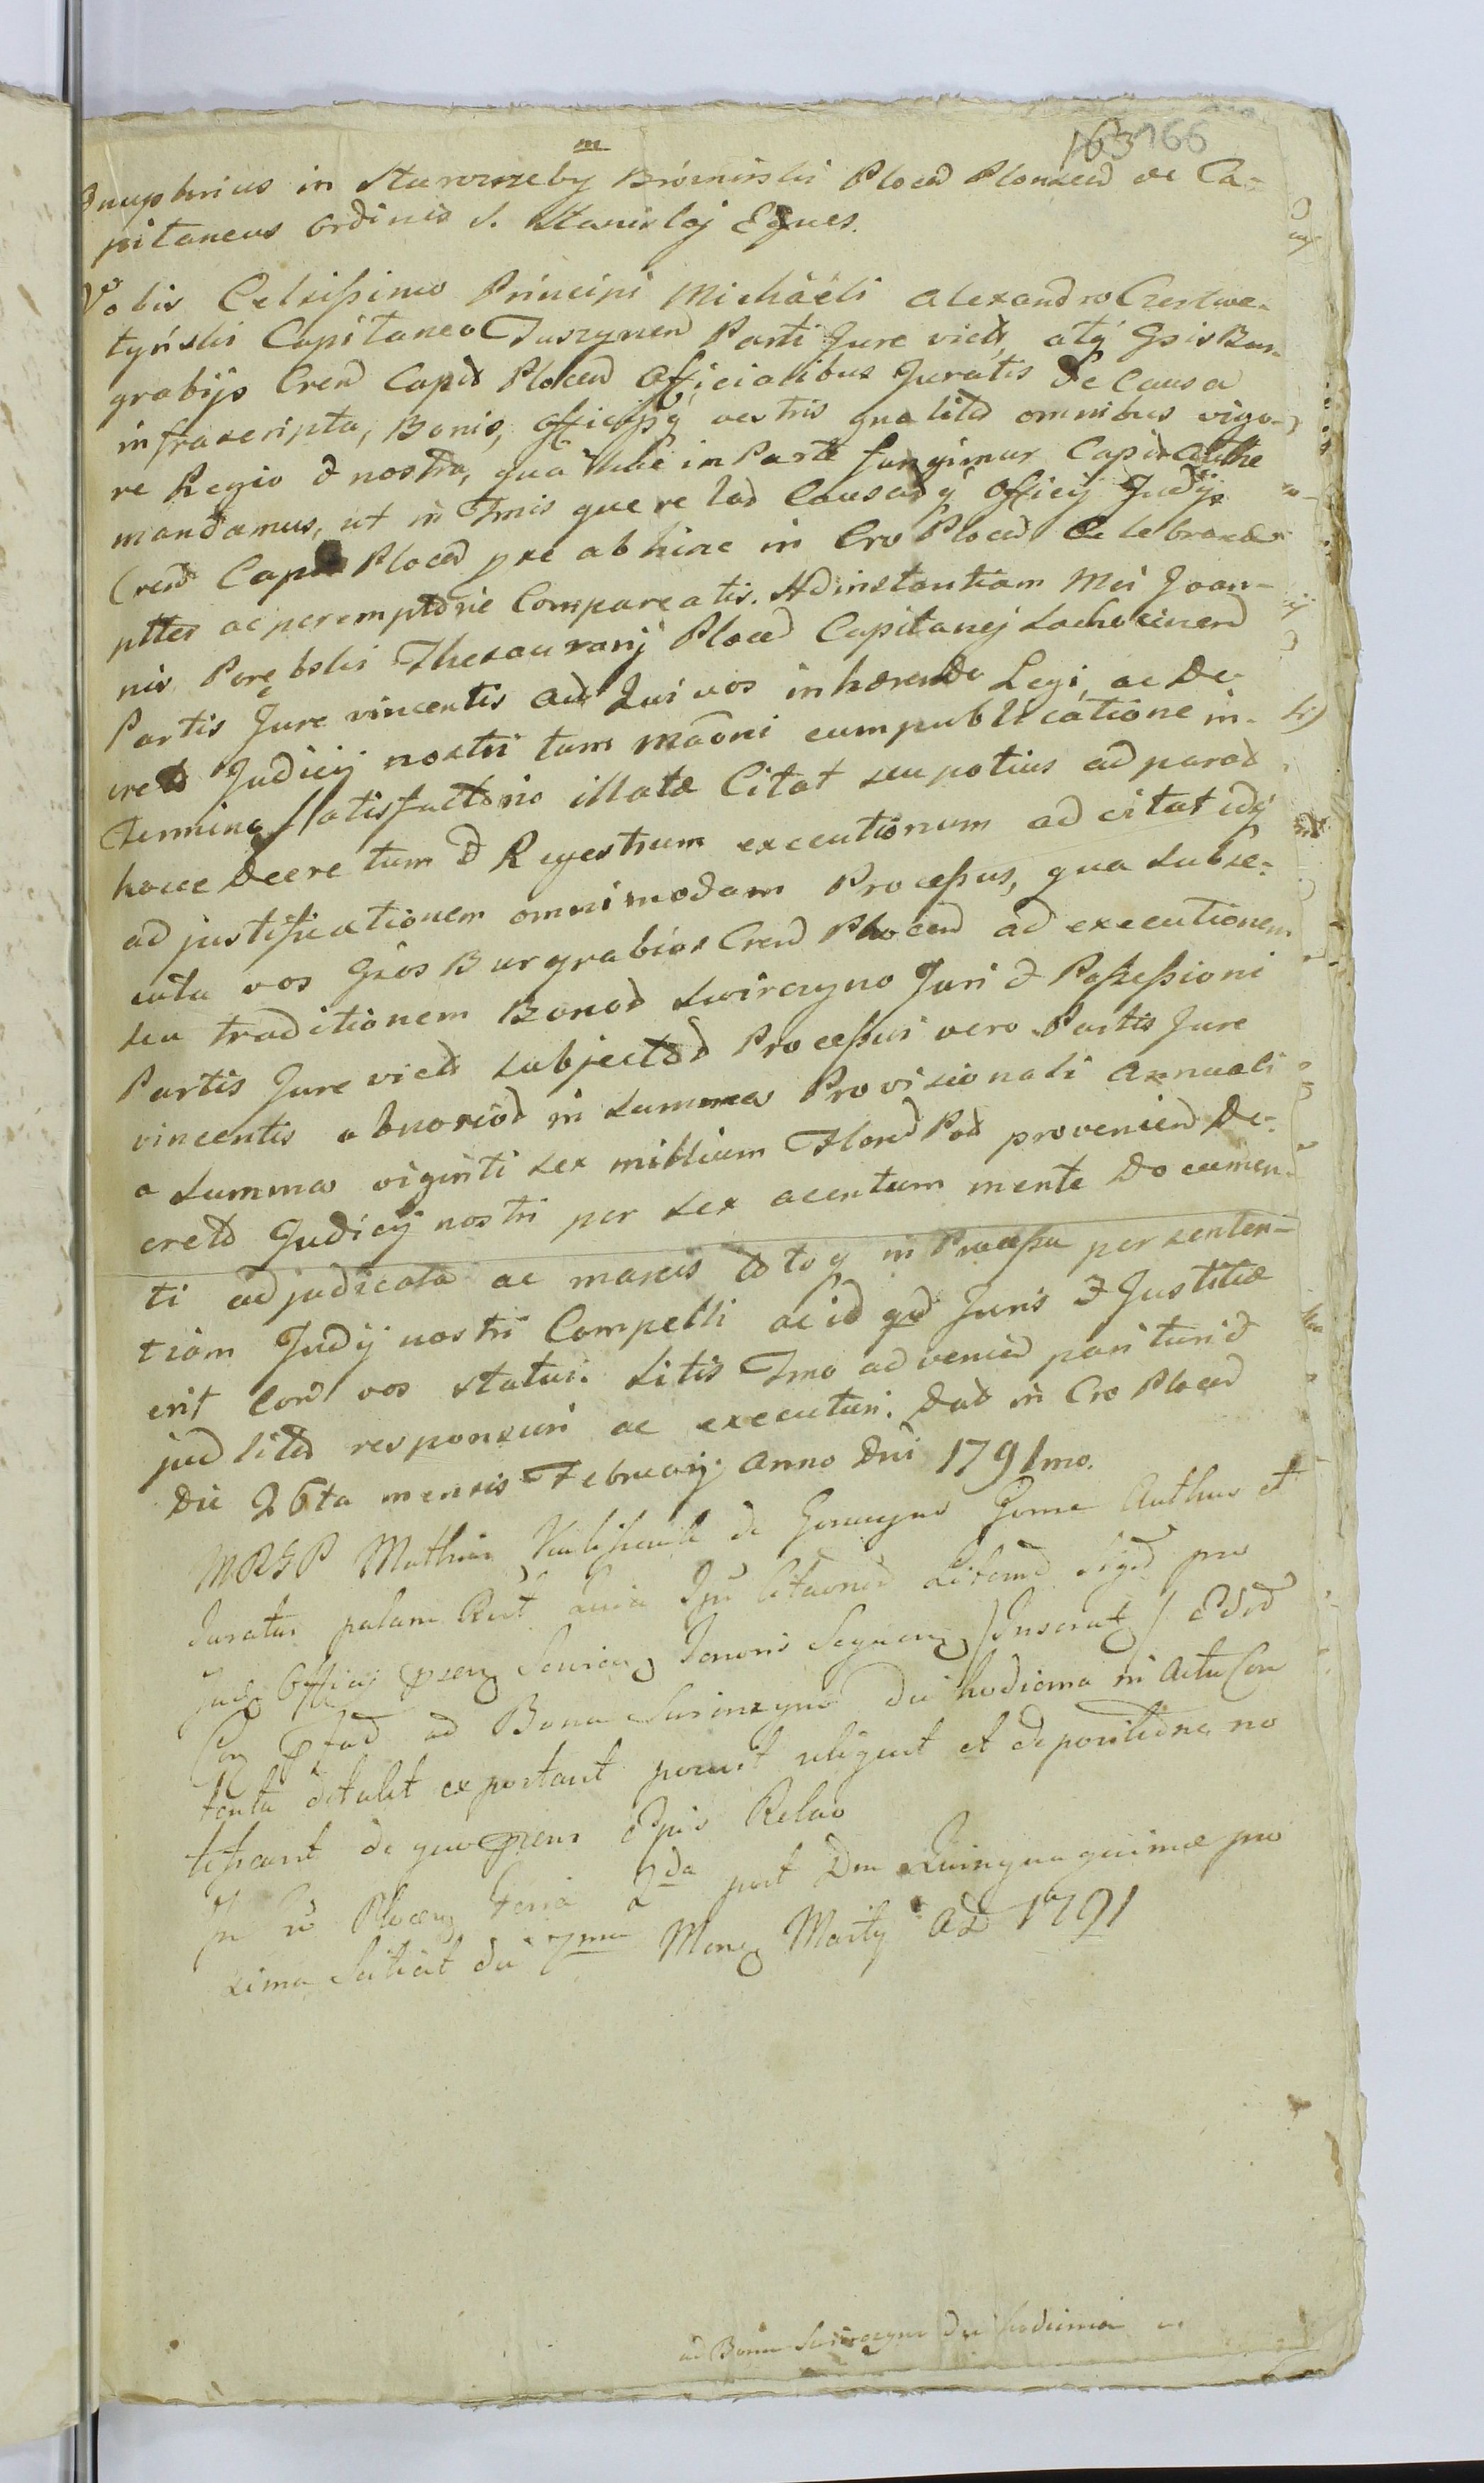 163 166
m
Onuphrius in Starorzeby Bromirski Plocen Plonscen &c Ca-
pitaneus Ordinis S. Stanislaj Eques.
Vobis Celsißimo Principi Michaëli Alexandro Czertwe-
tyński Capitaneo Duszynen Parti Jure victæ, atq Gsis Bur-
grabijs Cren Capis Plocen Officialibus Juratis De Causa
infrascripta, Bonis, Officijsq vestris qualitd omnibus vigo-
re Regio & nostra, qua hac in Parte fungimur Capis Authe
mandamus, ut in Tmis quere lad Causarq Officij Judijs
Cren Capis Plocen pxe abhinc in Cro Plocen Celebrand
pltter ac peremptorie Compareatis. Ad instantiam Mci Joan-
nis Porębski Thesaurarij Plocen Capitanej Lachocinen
Partis Jure vincentis Aus Qui vos inhærendo Legi, ac De-
creto Judicij nostri tum Madni cum publicatione in
Termino Satisfactorio illatæ Citat seu potius ad parat
hocce Decretum & Regestrum executionum ad citat idq
ad justificationem omnimodam Proceßus, qua subse-
cuta vos Gsos Burgrabios Cren Plocen ad executionem
seu traditionem Bonor Swirczyno Juri & Poßeßioni
Partis Jure victæ subjector Proceßui vero Partis Jure
vincentis obnoxior in Summa Provisionali Annuali
a Summa viginti sex millium Floren Pol provenien De-
creto Judicij nostri per sex a centum mente Documen-
ti adjudicata ac maxis totoq in Proceßu per senten-
tiam Judij nostri Compelli ac id qd Juris & Justitiæ
erit Cord vos statui. Litis Tmo advenien parituri &
jud litd responsuri ac executuri. Dat in Cro Plocen
Die 26ta mensis Februarij Anno Dni 1791mo.
MRGP Mathias de Gome Authus et
Juratus palam Rect Litem Sigil pro
Jud Officij psen Tenoris Sequen /Inserat/ Edid
Con ad Bona Swirczyno die hodierna in Actu Con
tenta detulit exportavit posuit reliquit et de positione no
tificavit de quo psens Ejus Relao
In Cro Plocen Feria 2da post Dm Quinquagesimæ pro
xima die 7ma Mens Martij AD 1791
ad Bona Swirczyno Die hodierna in